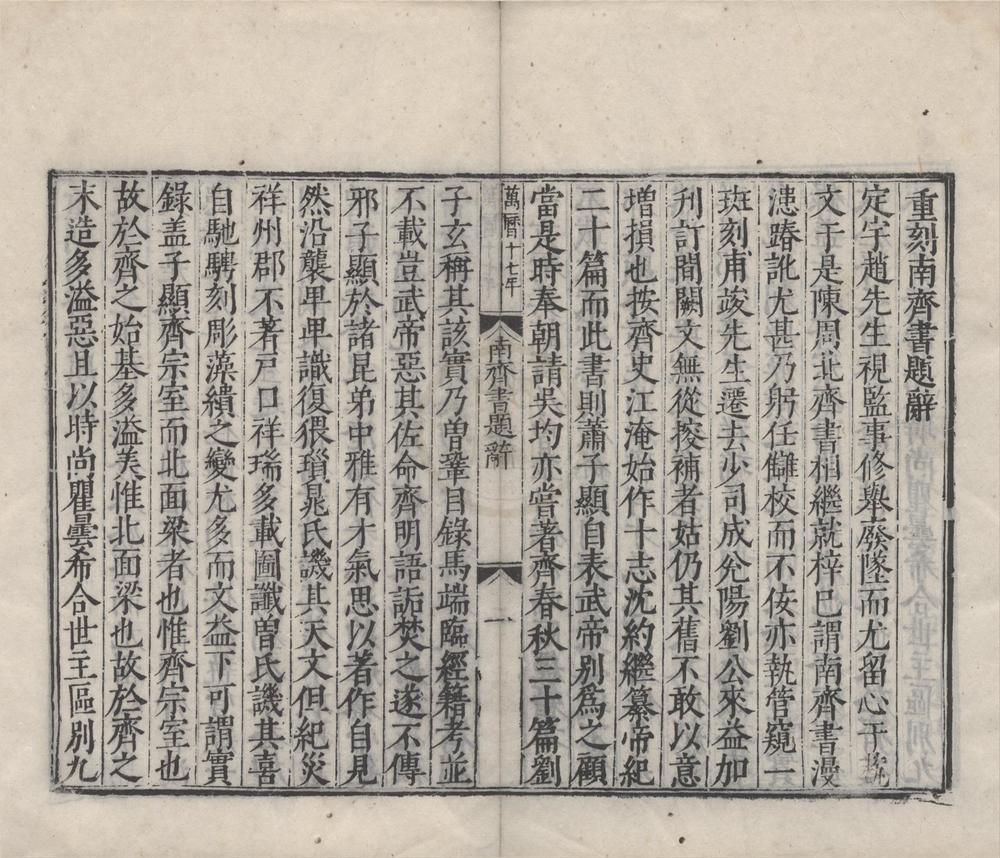 重刻南齊書題辭
定宇趙先生視監事修舉廢墜而尤留心于
文于是陳周北齊書相繼就梓已謂南齊書漫
漶蹖訛尤甚乃躬任讎校而不佞亦執管窺一
斑刻甫竣先生遷去少司成兊陽劉公來益加
刊訂間闕文無從挍補者姑仍其舊不敢以意
增損也按齊史江淹始作十志沈約繼纂帝紀
二十篇而此書則蕭子顯自表武帝別爲之顧
當是時奉朝請吳均亦嘗著齊春秋三十篇劉
萬曆十七年
南齊書題辭
一
子玄稱其該實乃曾鞏目錄馬端臨經籍考並
不載豈武帝惡其佐命齊明語詬焚之遂不傳
邪子顯於諸昆弟中雅有才氣思以著作自見
然沿襲卑卑識復猥瑣晁氏譏其天文但紀災
祥州郡不著戸口祥瑞多載圖讖曾氏譏其喜
自馳騁刻彫藻繢之變尤多而文益下可謂實
錄盖子顯齊宗室而北面梁者也惟齊宗室也
故於齊之始基多溢美惟北面梁也故於齊之
末造多溢惡且以時尚瞿曇希合世主區別九